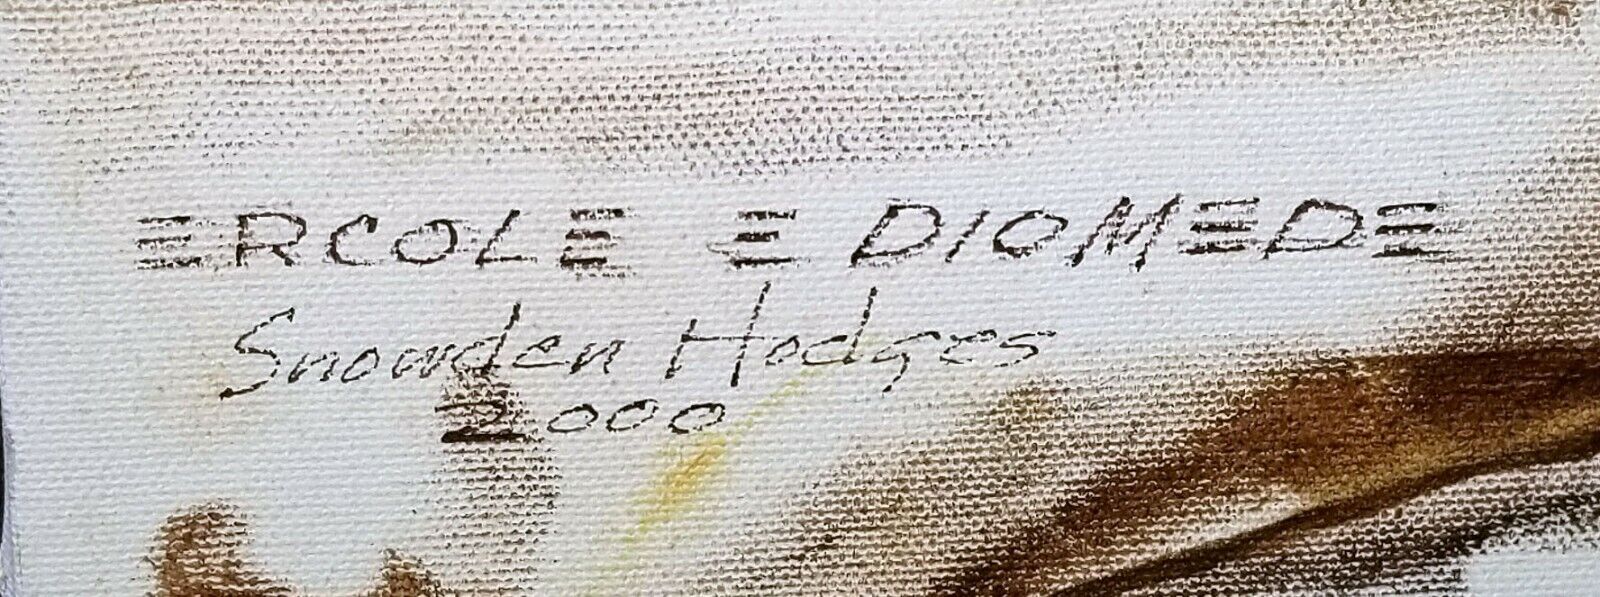 ERCOLE E DIOMEDE
Snowden Hodges
2000